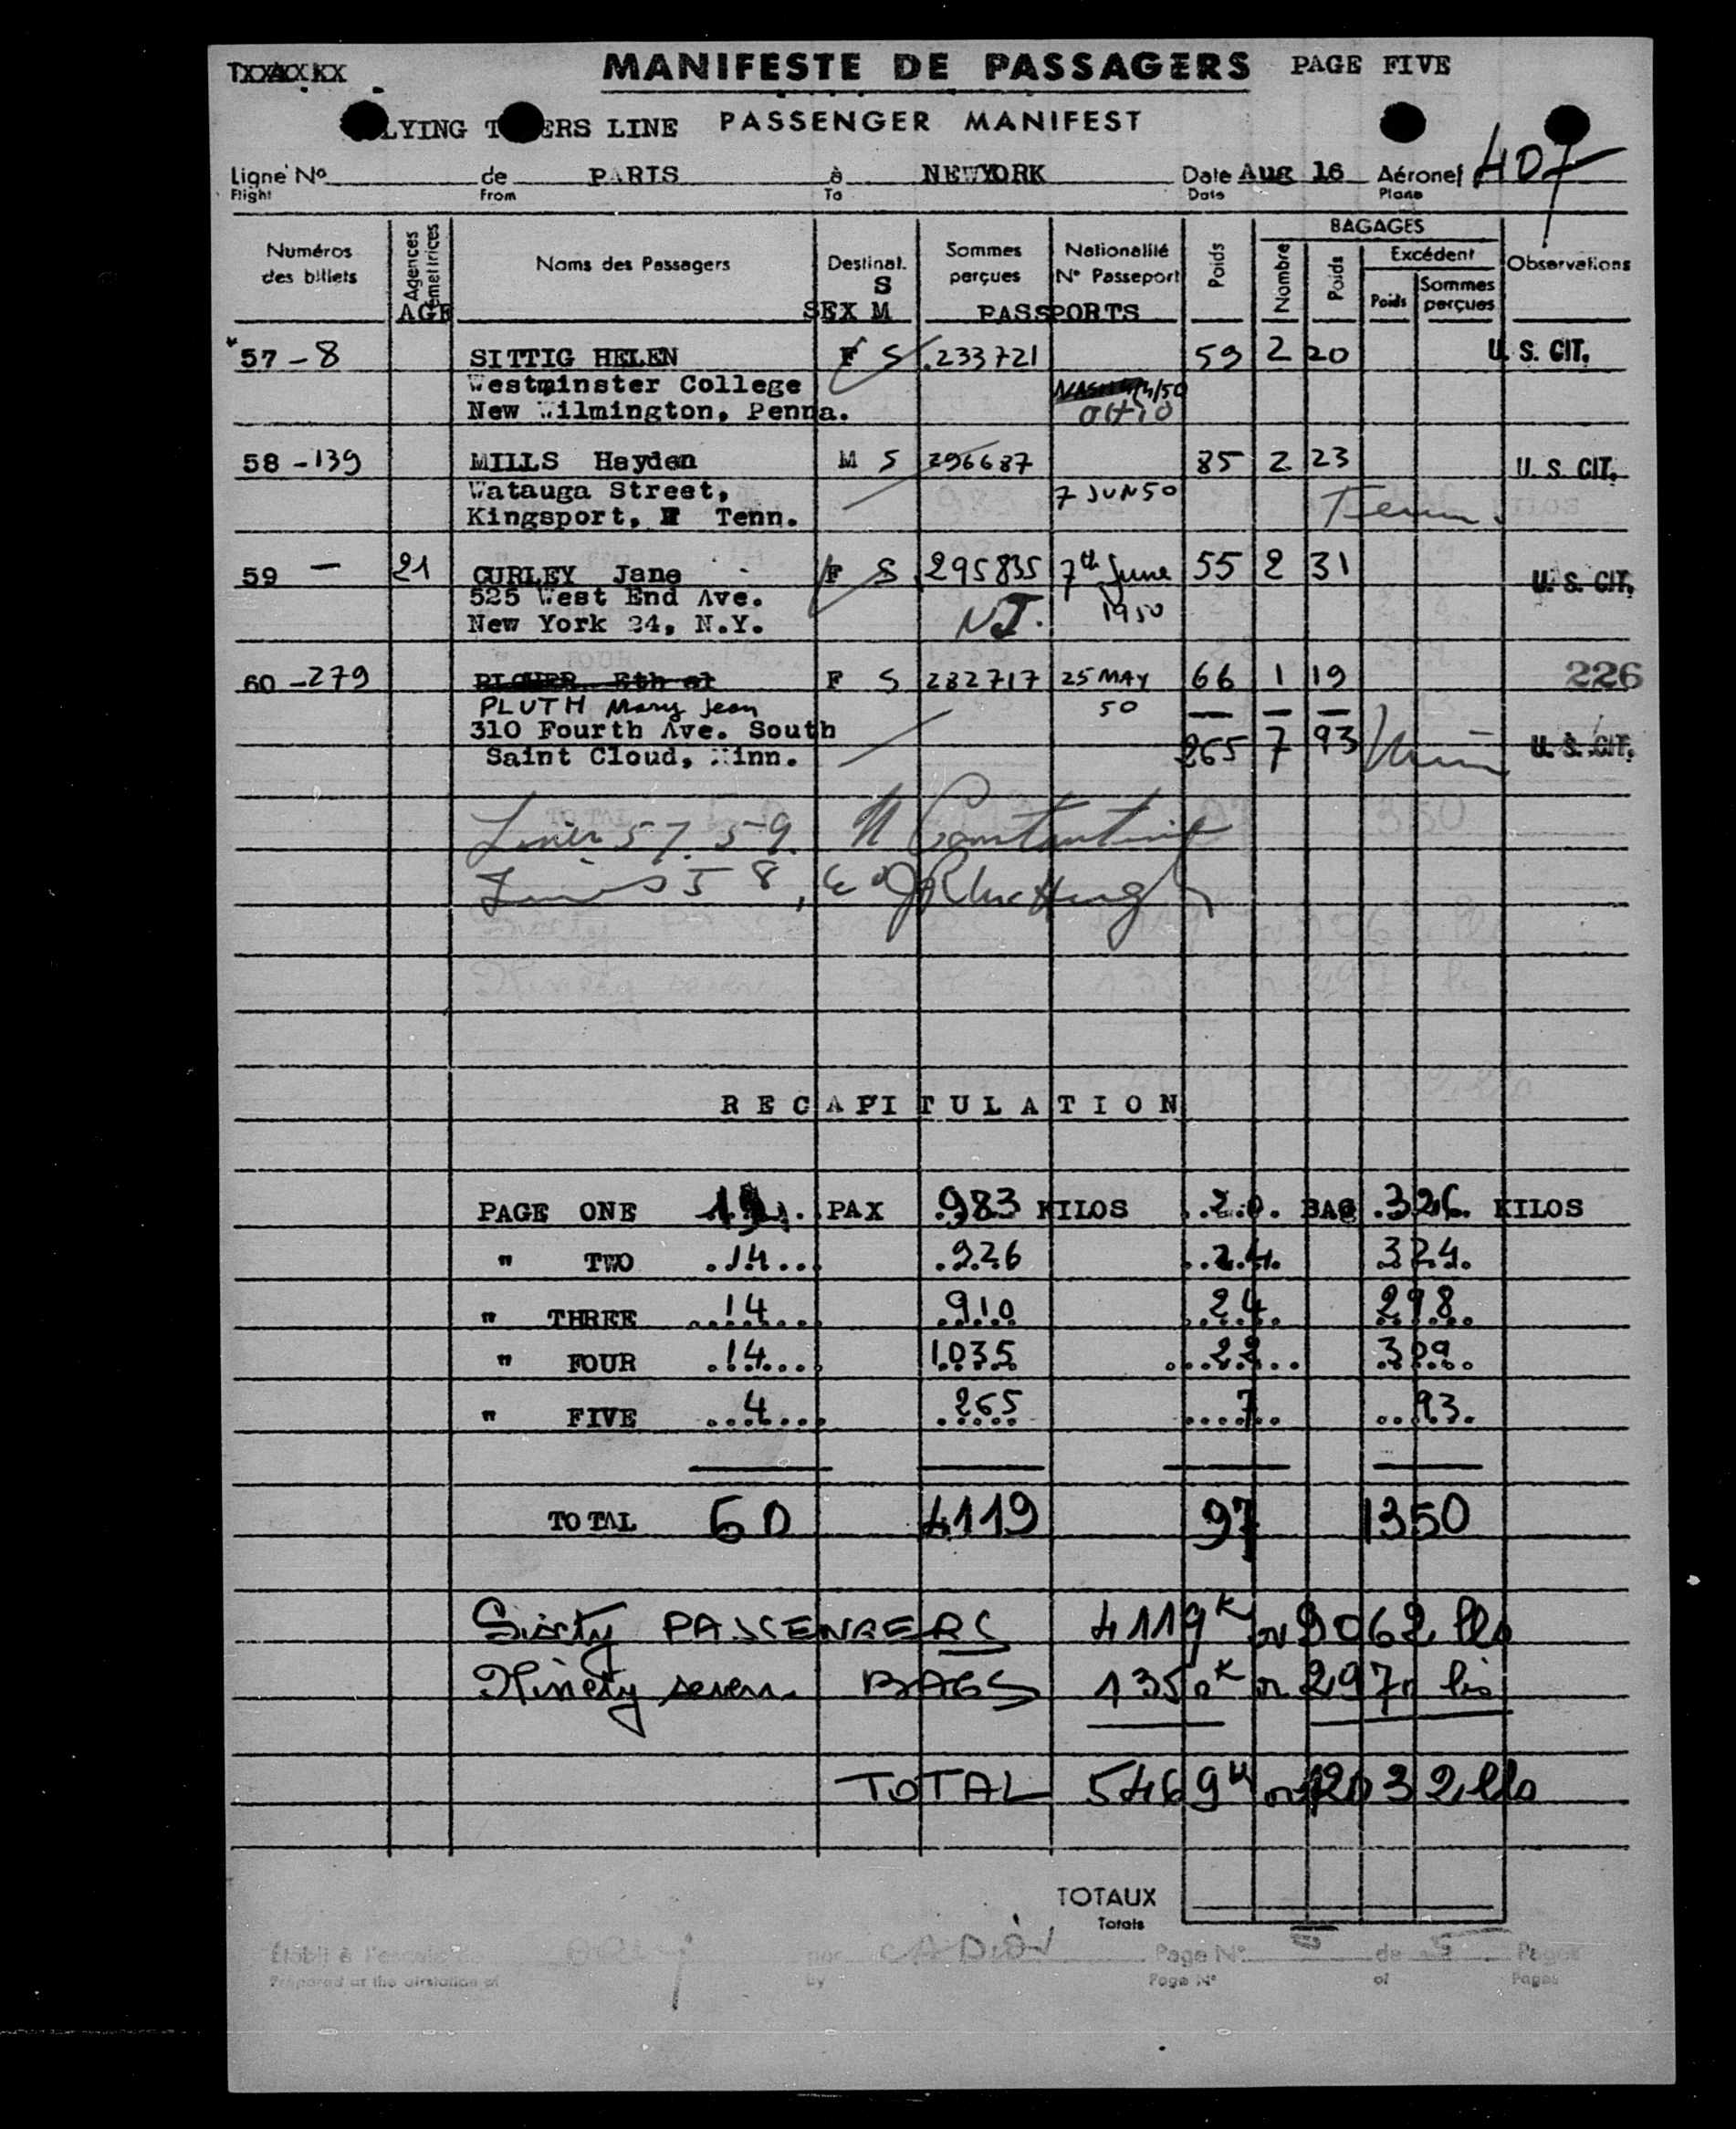 MANIFESTE DE PASSAGERS PAGE FIVE
LYING T ERS LINE PASSENGER MANIFEST
Ligne No de PARIS à NEWYORK Date Aug 16 Aéronef 407
Flight From To Date Plane
BAGAGES
Numéros des billets Agences émettrices Noms des Passagers Destinat. Sommes perçues Nationalité N° Passeport Poids Nombre Poids Excédent Observations
Poids Sommes perçues
S
AGE SEX M PASSPORTS
57 - 8 SITTIG HELEN F S 233721 59 2 20 U. S. CIT.
Westminster College
New Wilmington, Penna.
58 - 139 MILLS Hayden M S 296687 85 2 23 U. S. CIT.
Watauga Street, 7 JUN 50
Kingsport, Tenn. Tenn.
59 — 21 CURLEY Jane F S 295835 7th June 55 2 31 U. S. CIT.
525 West End Ave. 1950
New York 24, N.Y. NJ.
60 - 279 F S 232717 25 MAY 66 1 19 226
PLUTH Mary Jean 50
310 Fourth Ave. South
Saint Cloud, Minn. 265 7 93 Minn U. S. CIT.
Lines 57. 59. Constantine
Lines 58,
RECAPITULATION
PAGE ONE PAX 983 KILOS 20 BAG 326 KILOS
" TWO 14 926 24 324
" THREE 14 910 24 298
" FOUR 14 1035 22 309
" FIVE 4 265 7 93
TOTAL 60 4119 97 1350
Sixty PASSENGERS 4119 K or 9062 lbs
Ninety seven BAGS 1350 K or 2970 lbs
TOTAL 5469 K or 12032 lbs
TOTAUX
Totals
Etabli à l'escale de Orly par CADIOU Page N° 5 de 5 Pages
Prepared at the airstation of by Page N° of Pages